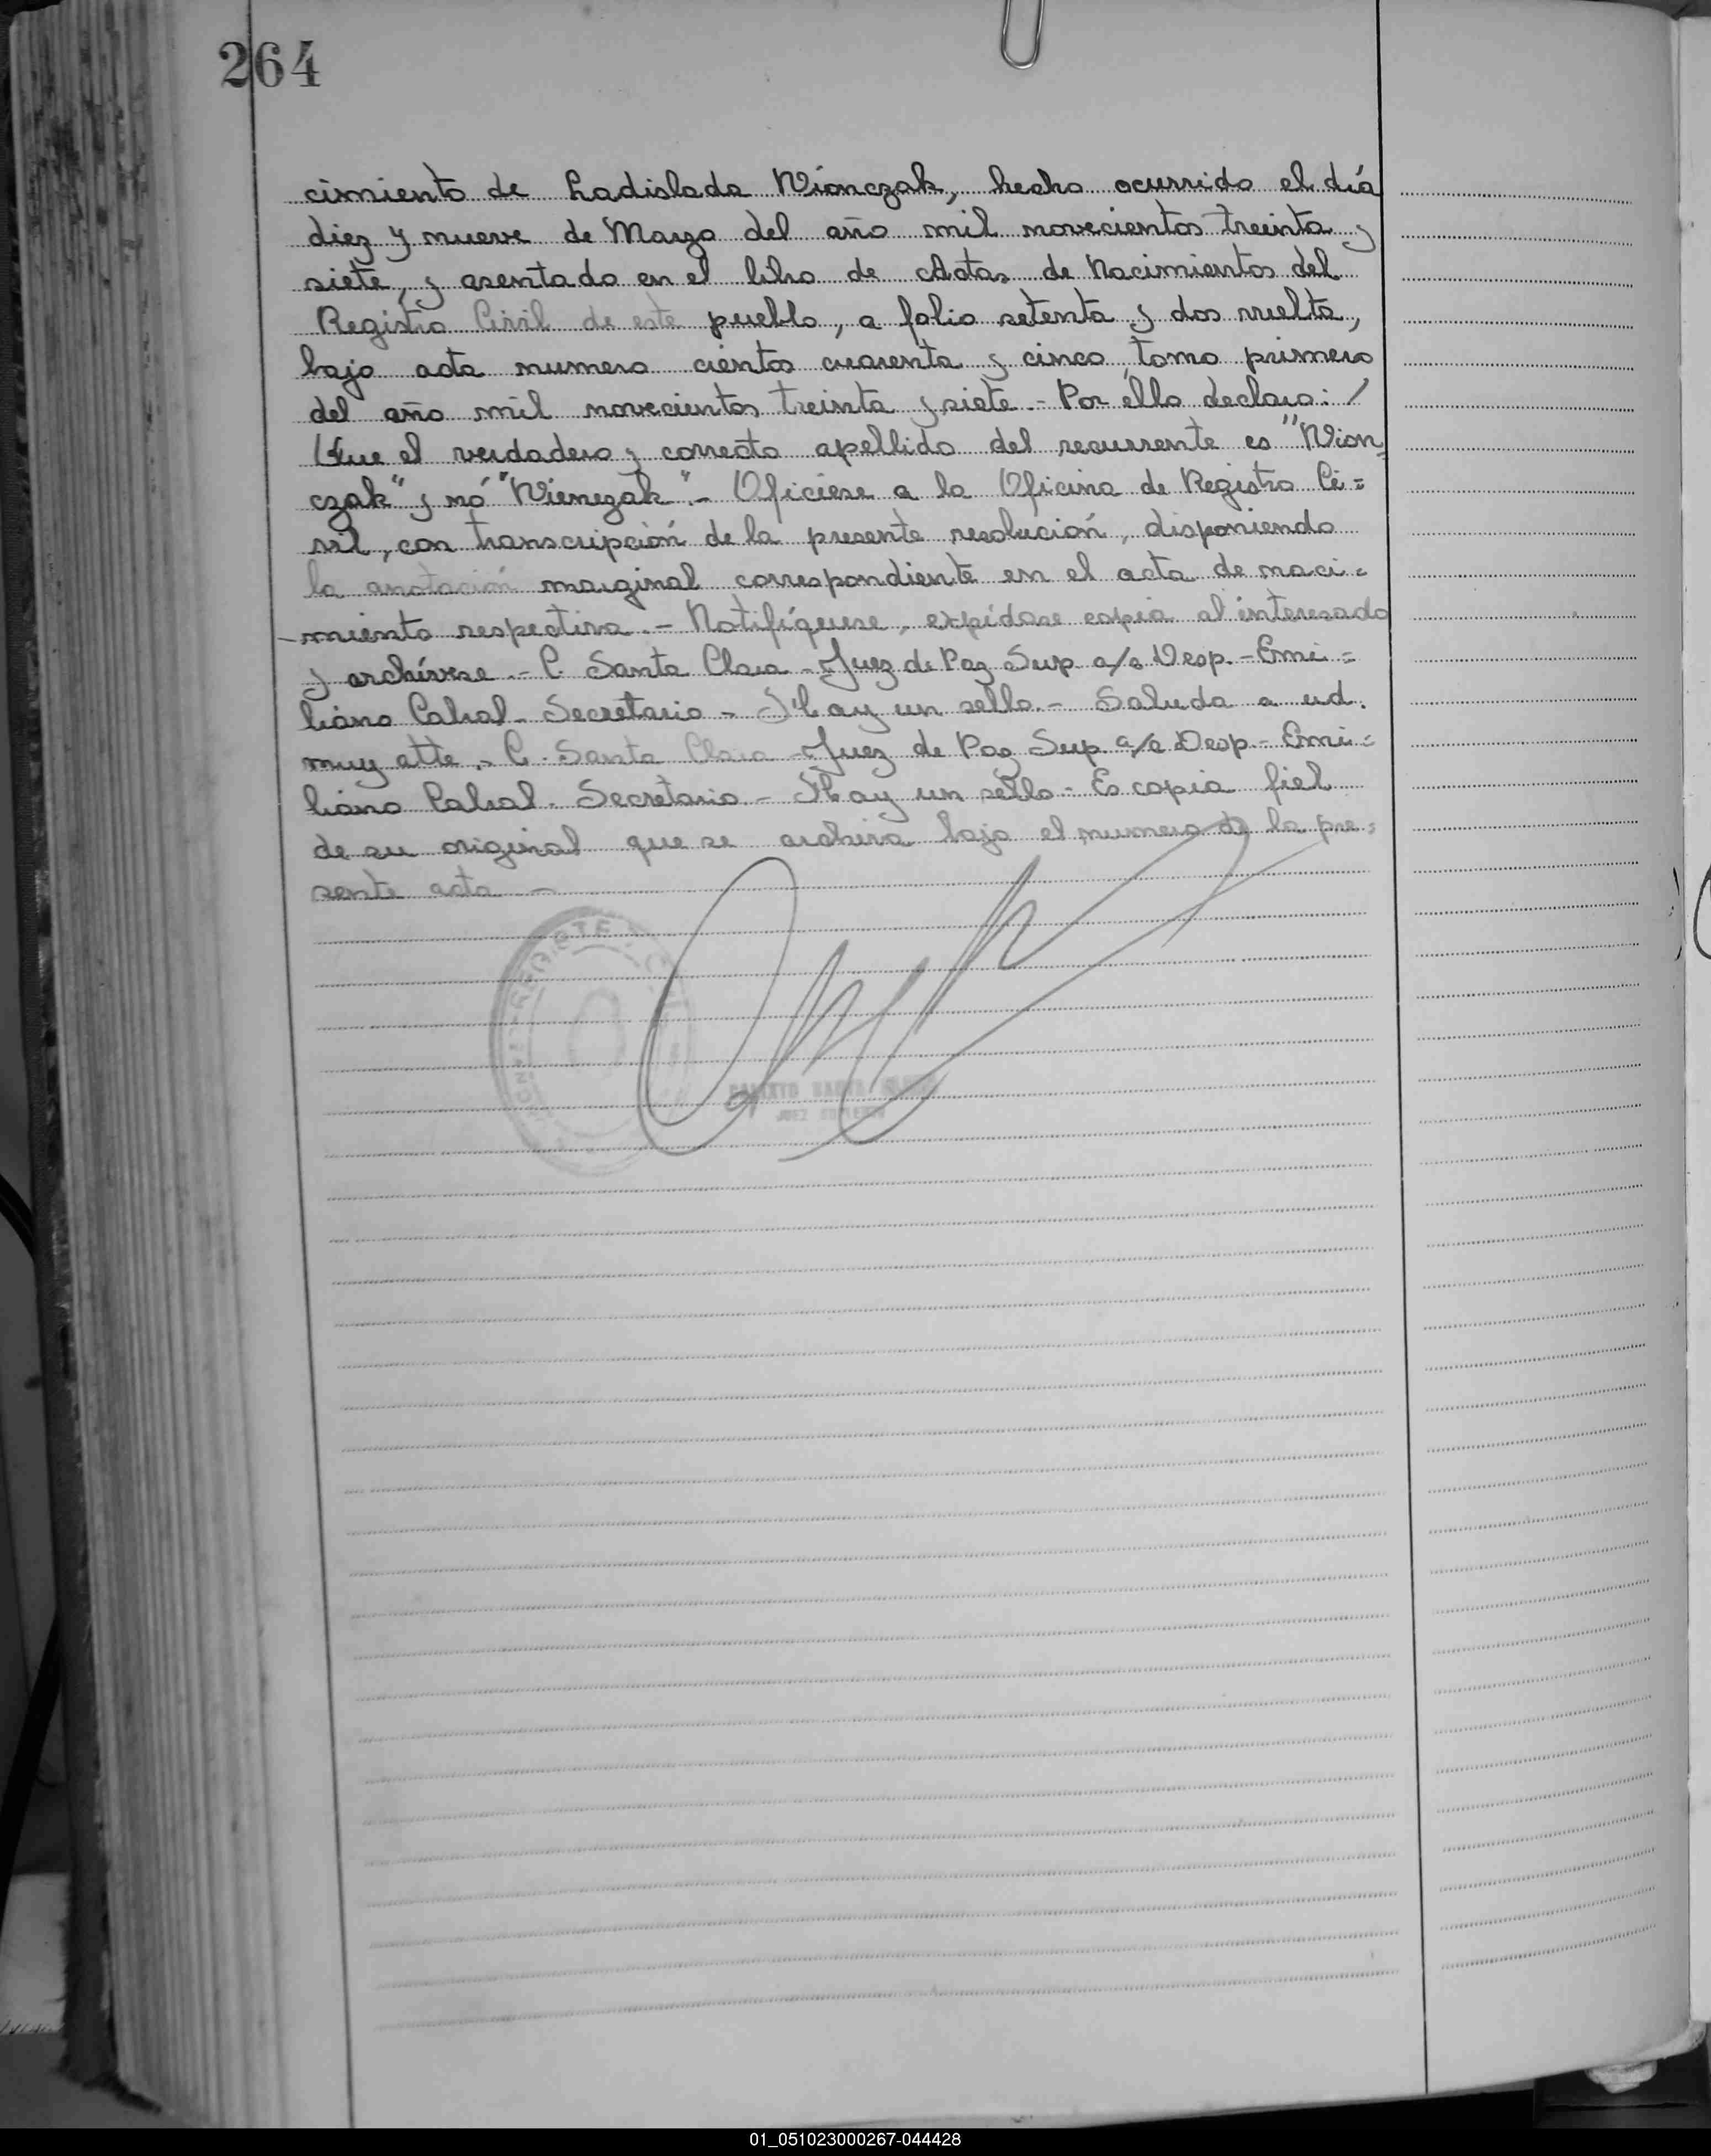 264
cimiento de Ladislada Wionczak, hecho ocurrido el día
diez y nueve de Marzo del año mil novecientos treinta y
siete, y asentado en el libro de Actas de Nacimientos del
Registro Civil de este pueblo, a folio setenta y dos vuelta,
bajo acta numero cientos cuarenta y cinco, tomo primero
del año mil novecientos treinta y siete.- Por éllo declaro: /
Que el verdadero y correcto apellido del recurrente es "Wion=
czak" y nó "Wienezak".- Ofíciese a la Oficina de Registro Ci=
vil, con transcripción de la presente resolución, disponiendo
la anotación marginal correspondiente en el acta de naci=
miento respectiva.- Notifíquese, expídase copia al interesado
y archívese.- C. Santa Clara - Juez de Paz Sup. a/c Desp.- Emi=
liano Cabral - Secretario - Hay un sello.- Saluda a ud.
muy atte.- C. Santa Clara - Juez de Paz Sup. a/c Desp.- Emi=
liano Cabral. Secretario - Hay un sello - Es copia fiel
de su original que se archiva bajo el numero de la pre=
sente acta -
JUEZ SUPLENTE
01_051023000267-044428